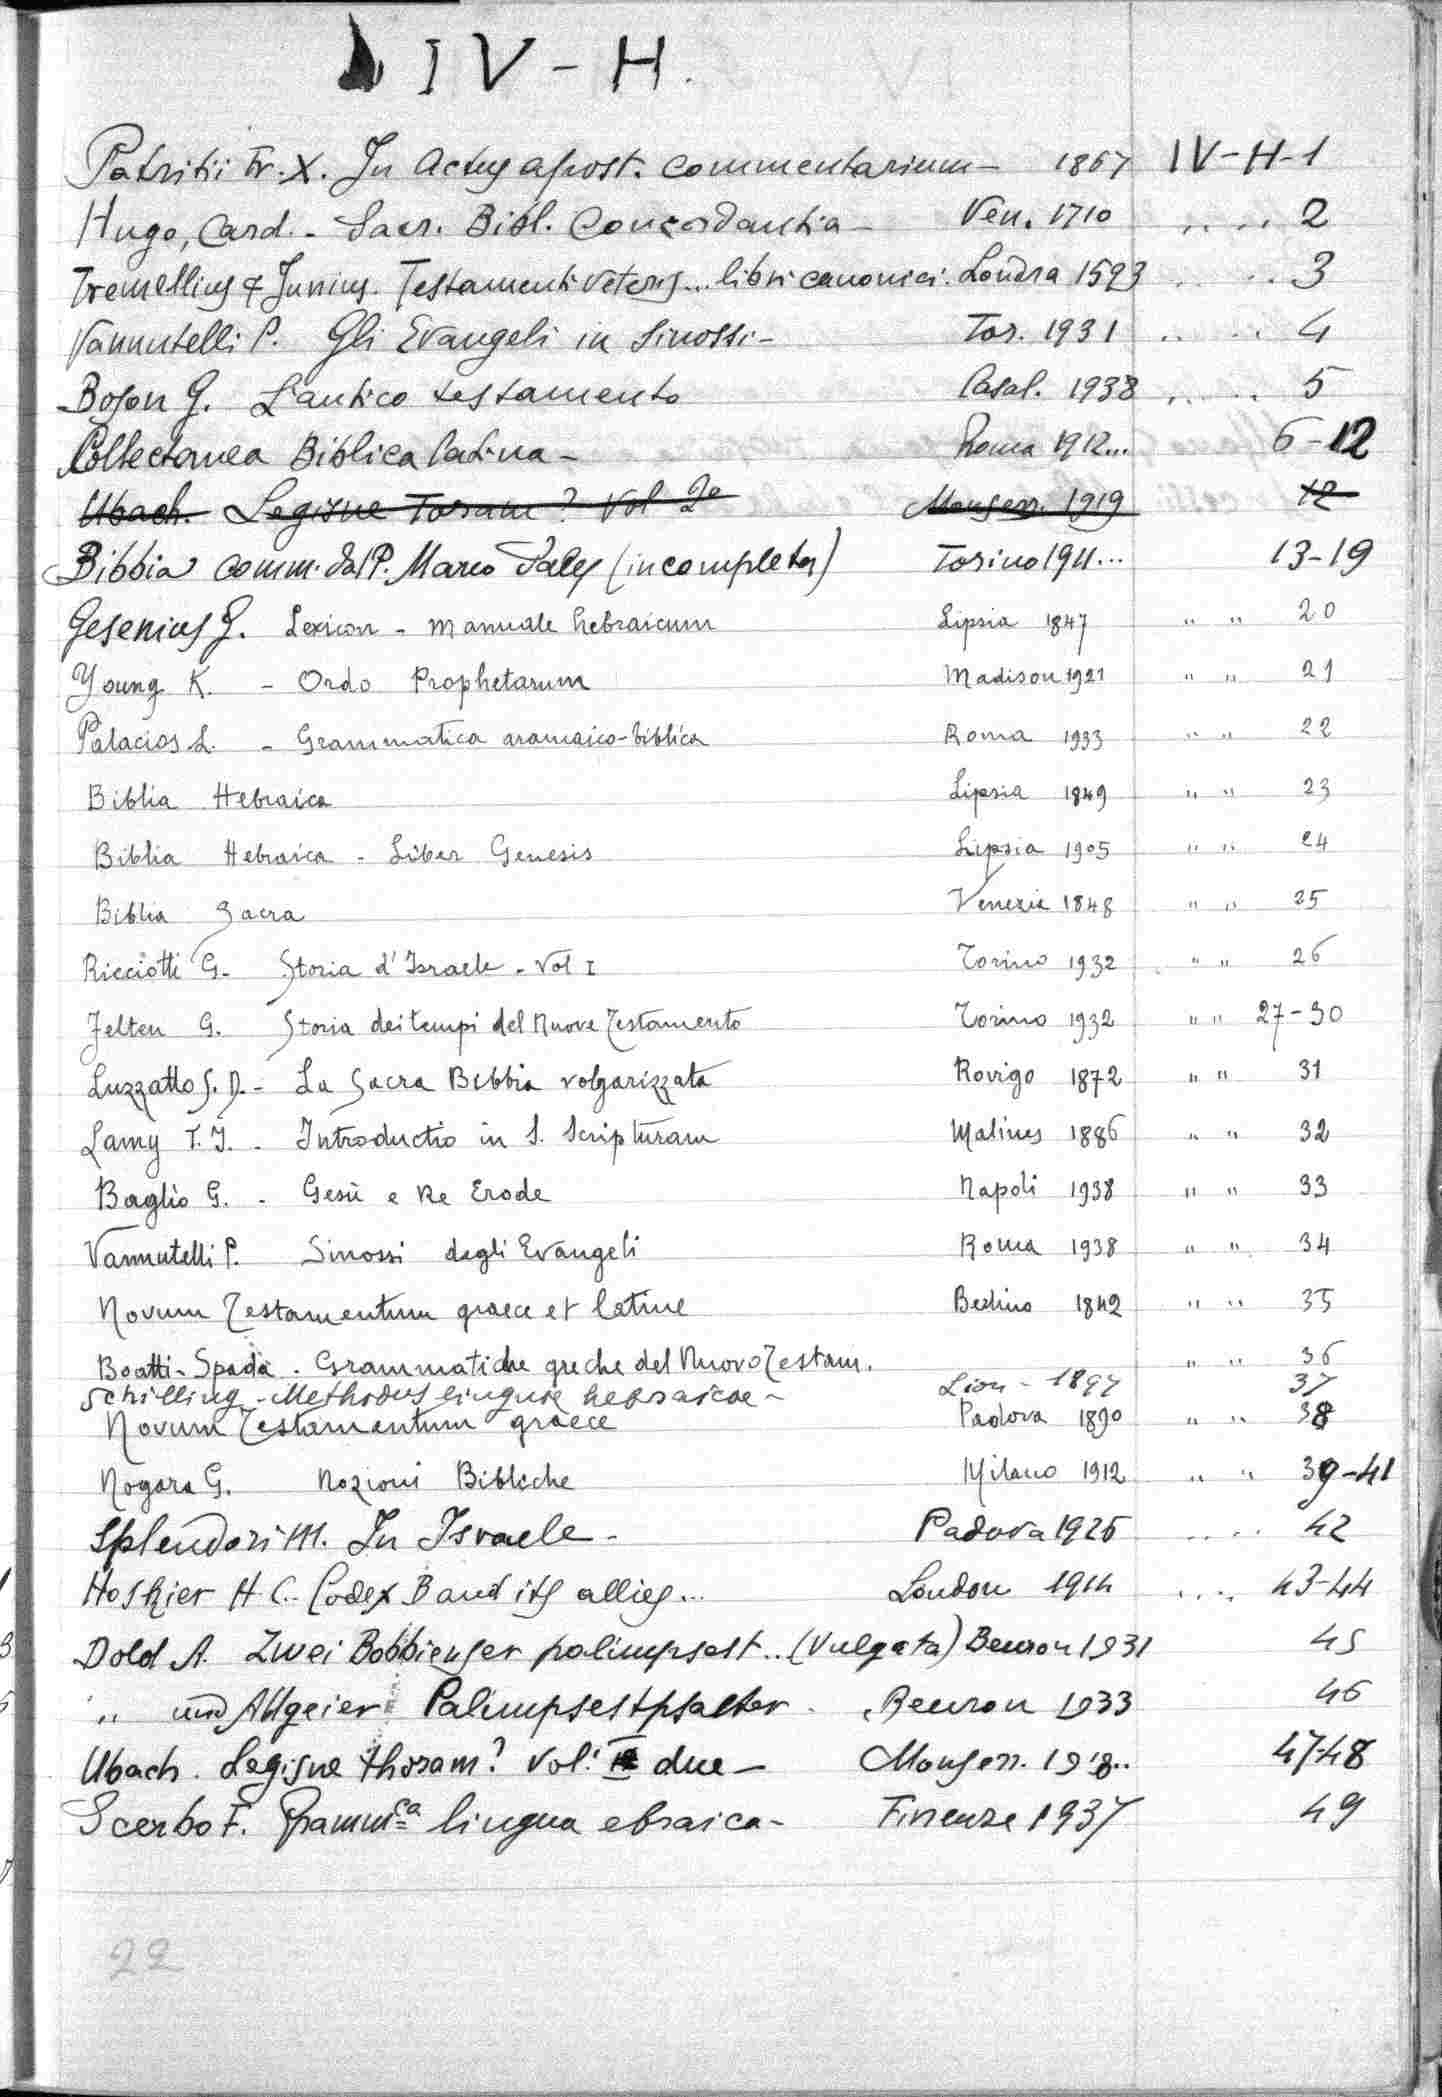 IV - H.
Patritii Fr. X. In Actus apost. commentarium - 1867 IV-H-1
Hugo, Card. - Sacr. Bibl. Concordantia - Ven. 1710 " " 2
Tremellius & Junius. Testamenti Veteris... libri canonici. Londra 1593 " " 3
Vannutelli P. Gli Evangeli in Sinossi - Tor. 1931 " " 4
Boson G. L'antico testamento Casal. 1938 " " 5
Collectanea Biblica latina - Roma 1912... 6-12
Ubach. Legisne Toram? Vol 2º Monserr. 1919 12
Bibbia comm. dal P. Marco Sales (incompleta) Torino 1911... 13-19
Gesenius G. Lexicon - manuale hebraicum Lipsia 1847 " " 20
Young K. - Ordo Prophetarum Madison 1921 " " 21
Palacios L. - Grammatica aramaico-biblica Roma 1933 " " 22
Biblia Hebraica Lipsia 1849 " " 23
Biblia Hebraica - Liber Genesis Lipsia 1905 " " 24
Biblia Sacra Venezia 1848 " " 25
Ricciotti G. Storia d'Israele - Vol I Torino 1932 " " 26
Felten G. Storia dei tempi del Nuovo Testamento Torino 1932 " " 27-30
Luzzatto S. D. - La Sacra Bibbia volgarizzata Rovigo 1872 " " 31
Lamy T. J. - Introductio in S. Scripturam Malines 1886 " " 32
Baglio G. - Gesù e Re Erode Napoli 1938 " " 33
Vannutelli P. Sinossi degli Evangeli Roma 1938 " " 34
Novum Testamentum graece et latine Berlino 1842 " " 35
Boatti-Spada - Grammatiche greche del Nuovo Testam. " " 36
Schilling - Methodus linguae hebraicae - Lion - 1897 37
Novum Testamentum graece Padova 1890 " " 38
Nogara G. Nozioni Bibliche Milano 1912 " " 39-41
Splendori M. In Israele - Padova 1926 " " 42
Hoskier H C. Codex B and its allies... London 1914 " " 43-44
Dold A. Zwei Bobbienser palimpsest.. (Vulgata) Beuron 1931 45
" und Allgeier Palimpsestpsalter. Beuron 1933 46
Ubach. Legisne thoram? Vol. due - Monserr. 1918.. 47-48
Scerbo F. Gramm.ca lingua ebraica - Firenze 1937 49
22